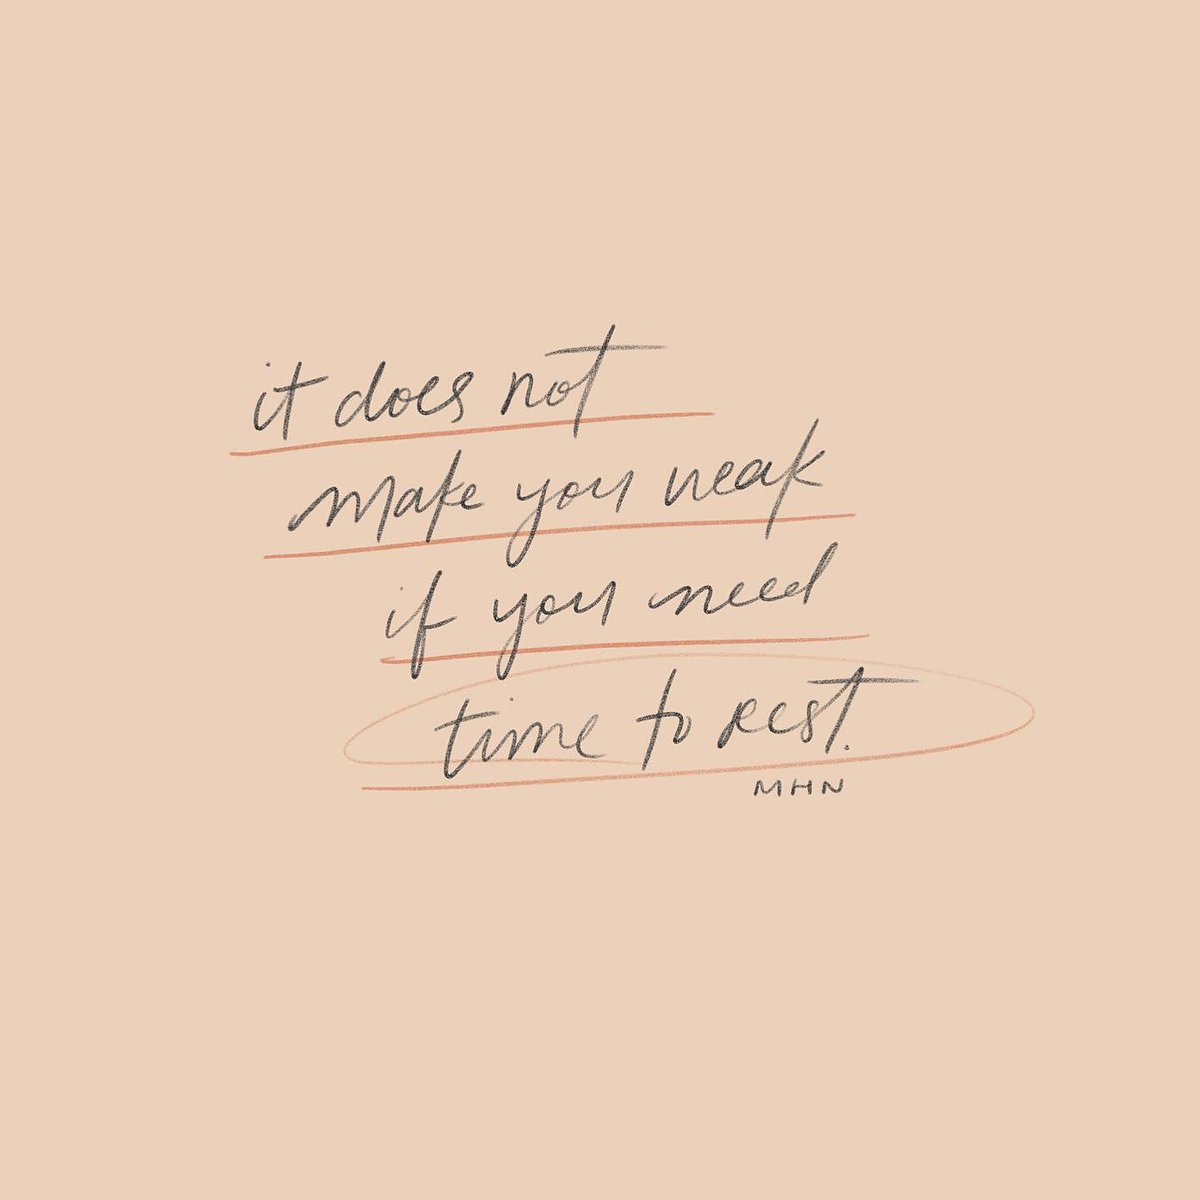 it does not
make you weak
if you need
time to rest.
MHN